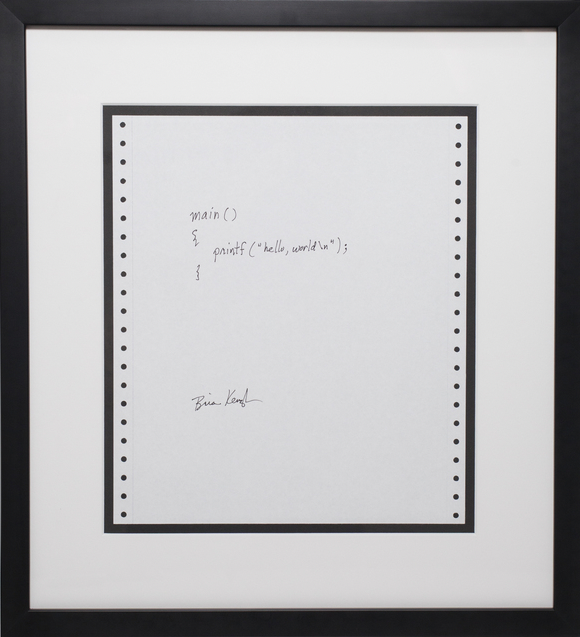 main()
{
printf("hello, world\n");
}
Brian Kernighan